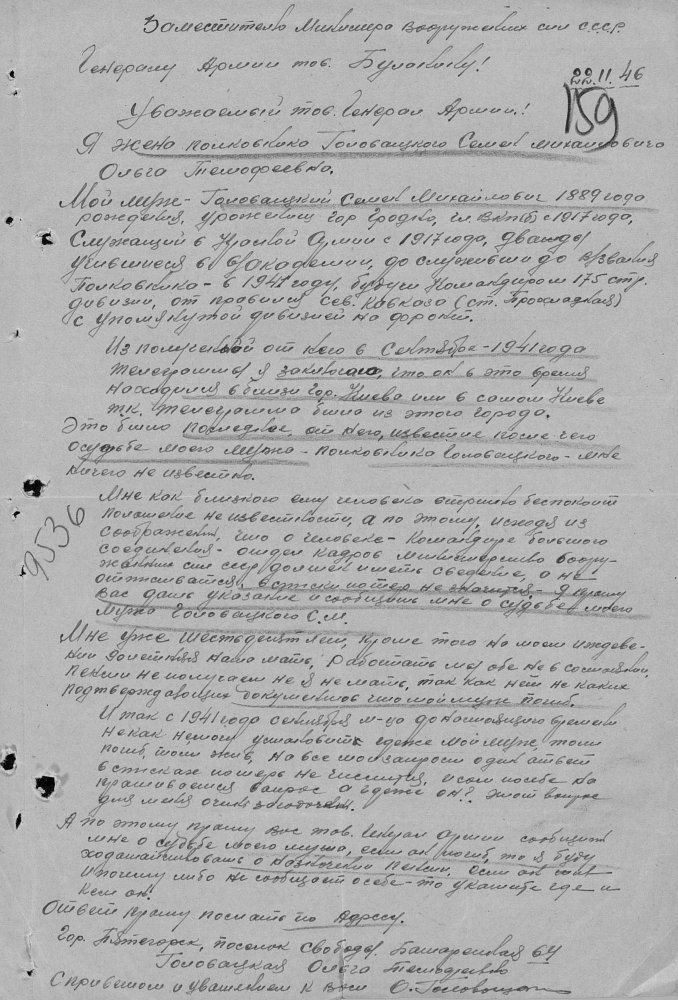 Заместителю Министра вооружених сил С.С.С.Р.
Генералу Армии тов. Булганину!
22.11.46
159
Уважаемый тов. Генерал Армии!
Я жена полковника Головацкого Семен Михайловича
Ольга Темофеевна.
Мой муж - Головацкий Семен Михайлович 1889 года
рождения, урожениц гор. Гродно, чл. ВКПб с 1917 года,
Служащий в Красной Армии с 1917 года, дважды
учившиеся в в/академии, до служивши до в/звания
Полковника - в 1941 году, будучи Командиром 175 стр.
дивизии, от правился сев. Кавказа (ст. Прохладная)
с упомянутой дивизией на фронт.
Из полученой от него в Сентябре - 1941 года
телеграммы я заключаю, что он в это время
находился в близи гор. Киева или в самом Киеве
т.к. телеграмма была из этого города.
Это было последнее, от него, известие после чего
о судьбе моего мужа - полковника Головацкого - мне
ничего не известно.
9536
Мне как близкого ему человека страшно беспокоит
положение не известности, а по этому, исходя из
соображения, что о человеке - командире большого
соединения - отдел кадров министерства воору-
жених сил ссср должен иметь сведение, а не
отписываться в списки потер не значится - Я прошу
вас дать указание и сообщить мне о судьбе моего
мужа Головацкого С.М.
Мне уже шестьдесят лет, кроме того на моем иждеве-
нии 80 летняя мать, работать мы обе не в состоянии,
пенсии не получаем не я не мать, так как нет не каких
подтверждающих документов что мой муж погиб.
И так с 1941 года сентября м-ца до настоящего времени
некак немогу установить где же мой муж, то ли
погиб, то ли жив, на все мои запросы один ответ
в списках потерь не числится, и сам по себе на
прашиваемся вопрос а где же он? этот вопрос
для меня очень загадочен.
А по этому прашу Вас тов. Генерал Армии сообщить
мне о судьбе моего мужа, если он погиб, то я буду
ходатайствовать о назначении пенсии, если он жив
и почему либо не сообщает о себе - то укажите где и
кем он!
Ответ прашу послать по адресу.
Гор. Пятегорск, поселок Свободы, Батарейная 64
Головацкая Ольга Темофеевна
С приветом и уважением к Вам О. Головацкая